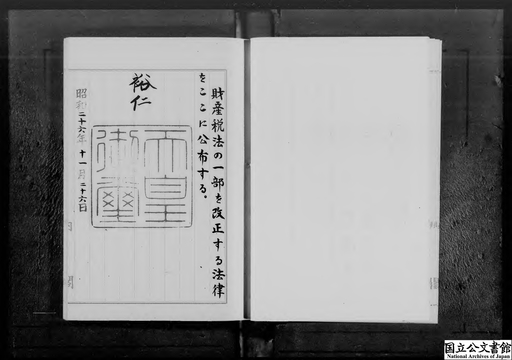 財産税法の一部を改正する法律
をここに公布する。
裕仁
天皇
御璽
昭和二十六年十一月二十六日
国立公文書館
National Archives of Japan